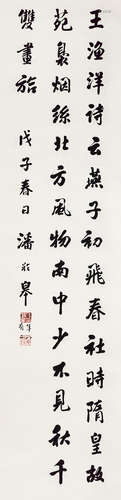 王渔洋诗云燕子初飛春社時隋皇故
苑裊烟絲北方風物南中少不見秋千
雙畫旂 戊子春日 潘齡皋